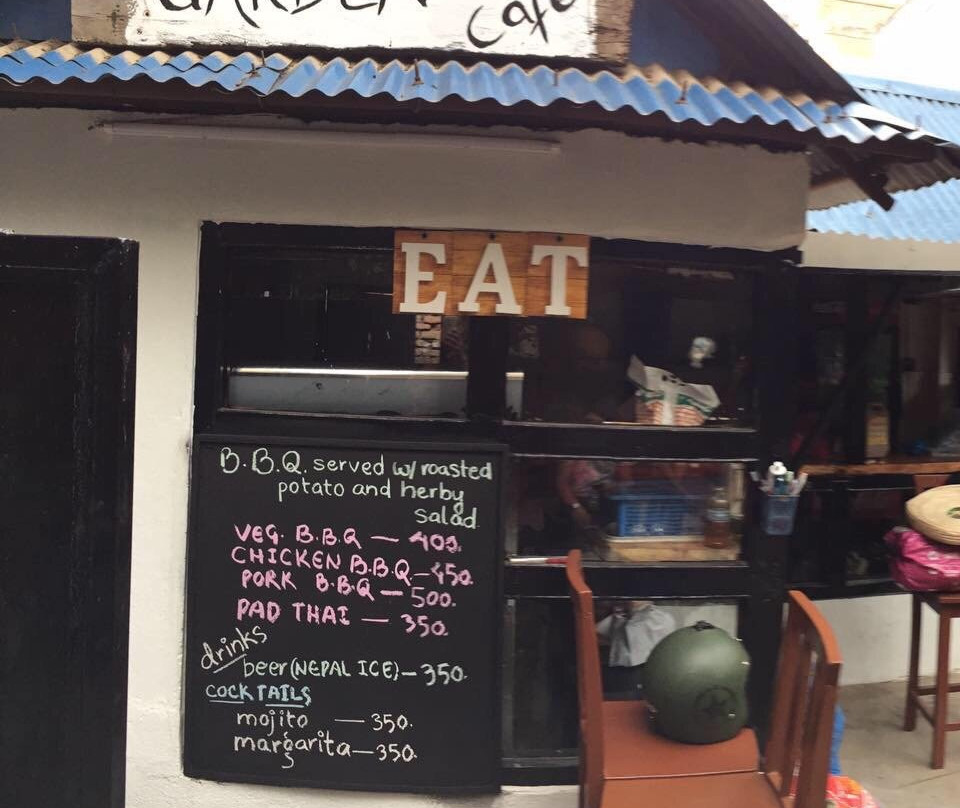 GARDEN
Cafe
EAT
B.B.Q. served w/ roasted
potato and herby
salad.
VEG. B.B.Q — 400.
CHICKEN B.B.Q — 450.
PORK B.B.Q — 500.
PAD THAI — 350.
drinks
beer (NEPAL ICE) — 350.
COCKTAILS
mojito — 350.
margarita — 350.